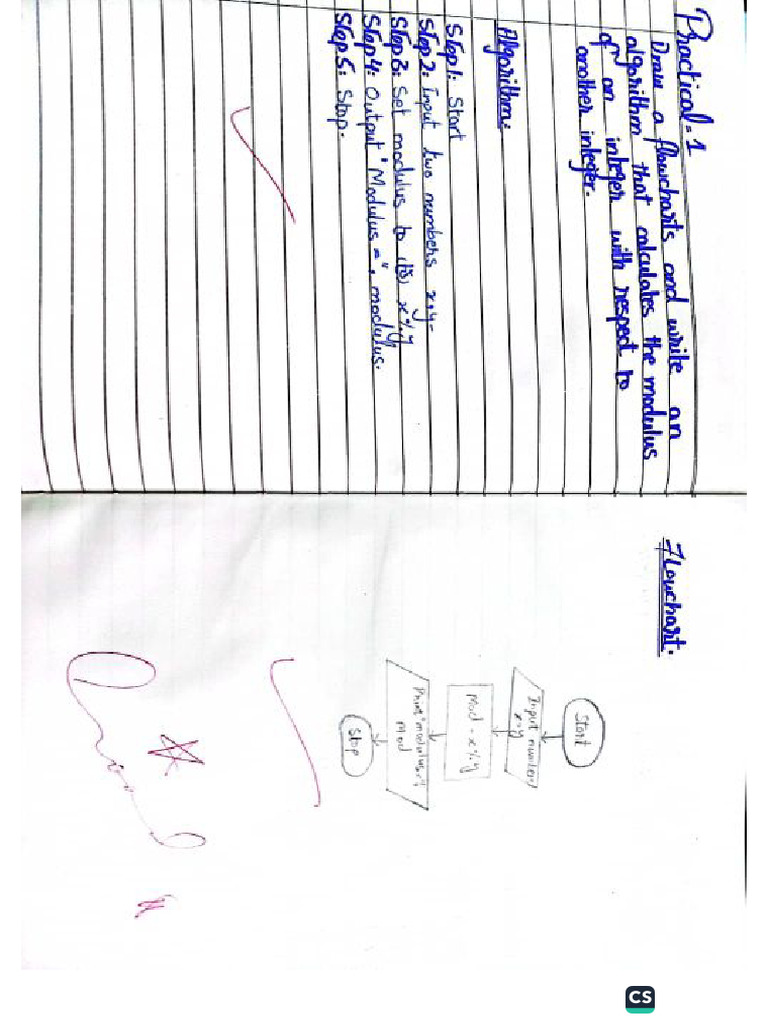 Practical=1
Draw a flowcharts and write an
algorithm that calculates the modulus
of an integer with respect to
another integer.
Algorithm:
Step1: Start
Step2: Input two numbers x,y-
Step3: Set modulus to x%y
Step4: Output "Modulus =", modulus.
Step5: Stop.
Flowchart.
Start
Input numbers
x,y
Mod = x%y
Print "modulus="
Mod
Stop
CS